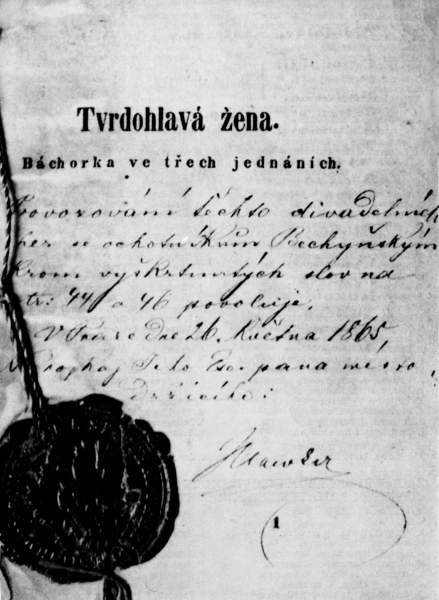 Tvrdohlavá žena.
Báchorka ve třech jednáních.
Provozování těchto divadelních
her se ochotníkům Bechyňským
krom vyškrtnutých slov na
str: 44 a 46 povoluje.
V Praze dne 26. Května 1865,
Jeho Exc. pana místo
držícího:
1